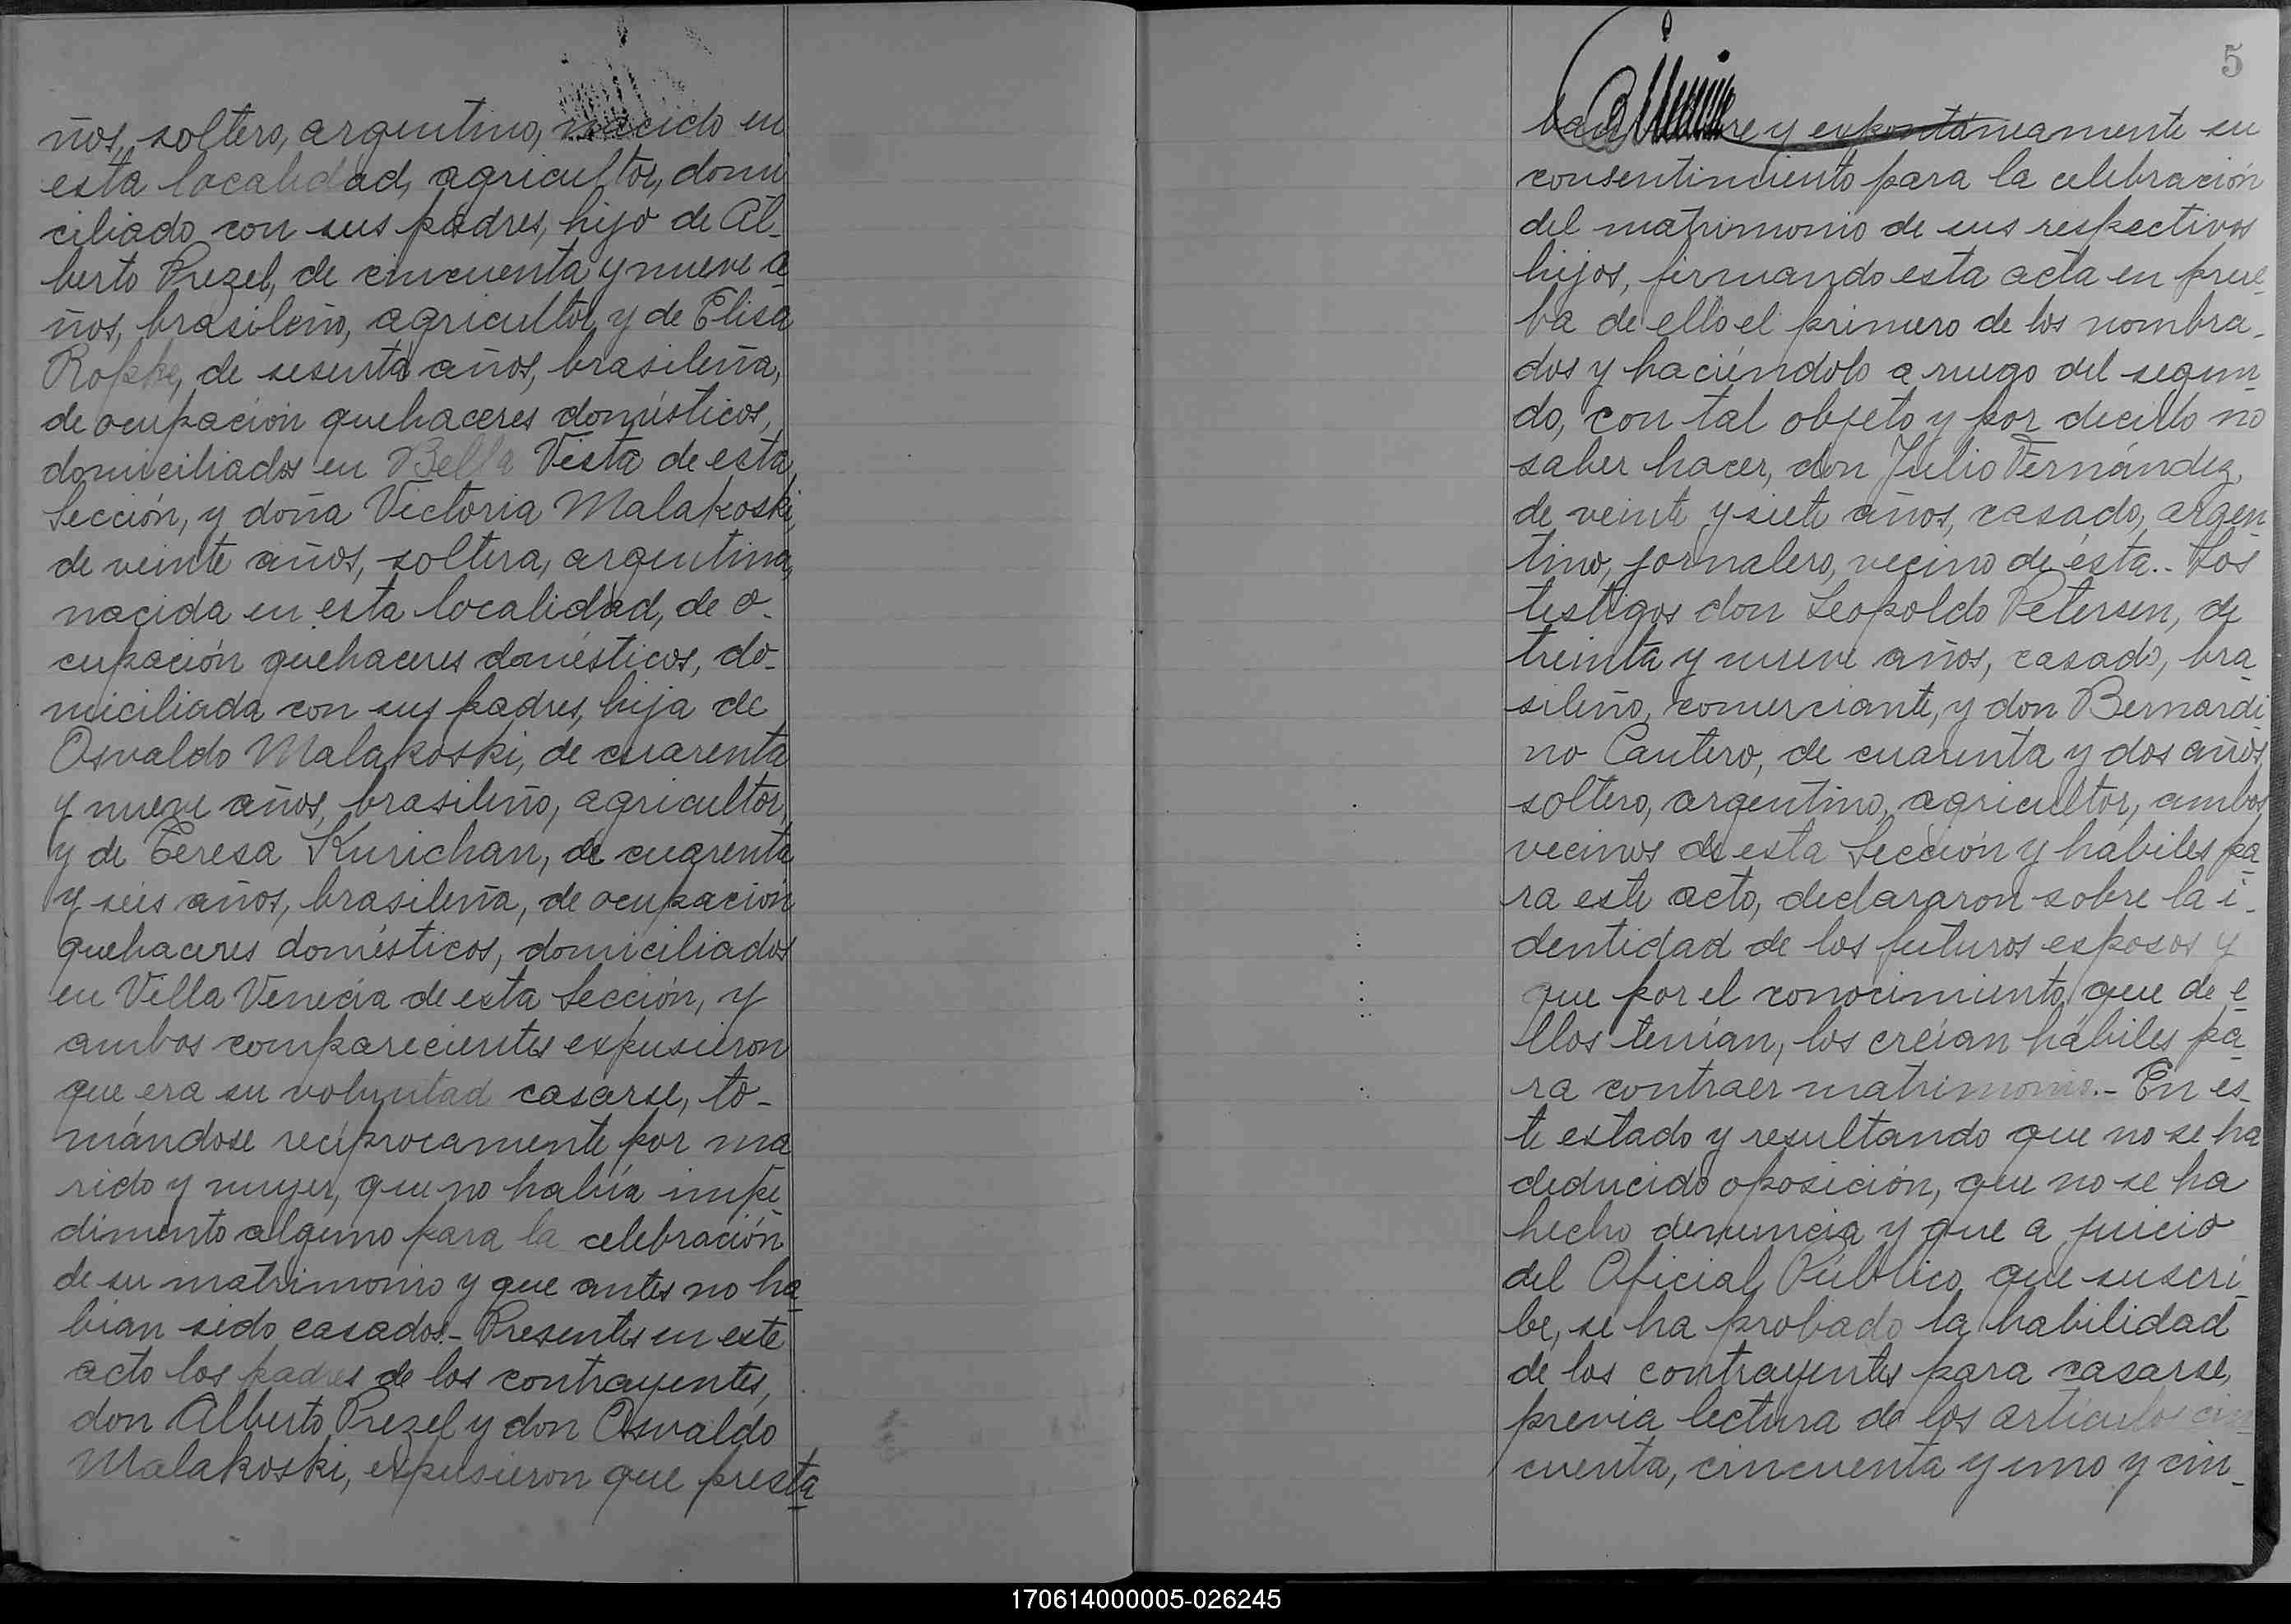 ños, soltero, argentino, nacido en
esta localidad, agricultor, domi
ciliado con sus padres, hijo de Al-
berto Prezel, de cincuenta y nueve a
ños, brasileño, agricultor y de Elisa
Ropke, de sesenta años, brasileña,
de ocupación quehaceres domésticos,
domiciliados en Bella Vista de esta
Sección, y doña Victoria Malakoski,
de veinte años, soltera, argentina,
nacida en esta localidad, de o-
cupación quehaceres domésticos, do-
miciliada con sus padres, hija de
Osvaldo Malakoski, de cuarenta
y nueve años, brasileño, agricultor,
y de Teresa Kurichan, de cuarenta
y seis años, brasileña, de ocupación
quehaceres domésticos, domiciliados
en Villa Venecia de esta Sección, y
ambos comparecientes expusieron
que era su voluntad casarse, to-
mándose recíprocamente por ma
rido y mujer, que no había impe
dimento alguno para la celebración
de su matrimonio y que antes no ha
bian sido casados.- Presentes en este
acto los padres de los contrayentes,
don Alberto Prezel y don Osvaldo
Malakoski, expusieron que presta
5
ban y expontáneamente su
consentimiento para la celebración
del matrimonio de sus respectivos
hijos, firmando esta acta en prue-
ba de ello el primero de los nombra-
dos y haciéndolo a ruego del segun
do, con tal objeto y por decirlo no
saber hacer, don Julio Fernández,
de veinte y siete años, casado, argen
tino, jornalero, vecino de ésta.- Los
testigos don Leopoldo Petersen, de
treinta y nueve años, casado, bra
sileño, comerciante, y don Bernardi
no Cantero, de cuarenta y dos años,
soltero, argentino, agricultor, ambos
vecinos de esta Sección y hábiles pa
ra este acto, declararon sobre la i-
dentidad de los futuros esposos y
que por el conocimiento que de e
llos tenían, los creían hábiles pa
ra contraer matrimonio.- En es-
te estado y resultando que no se ha
deducido oposición, que no se ha
hecho denuncia y que a juicio
del Oficial Público que suscri
be, se ha probado la habilidad
de los contrayentes para casarse,
previa lectura de los artículos cin
cuenta, cincuenta y uno y cin-
170614000005-026245